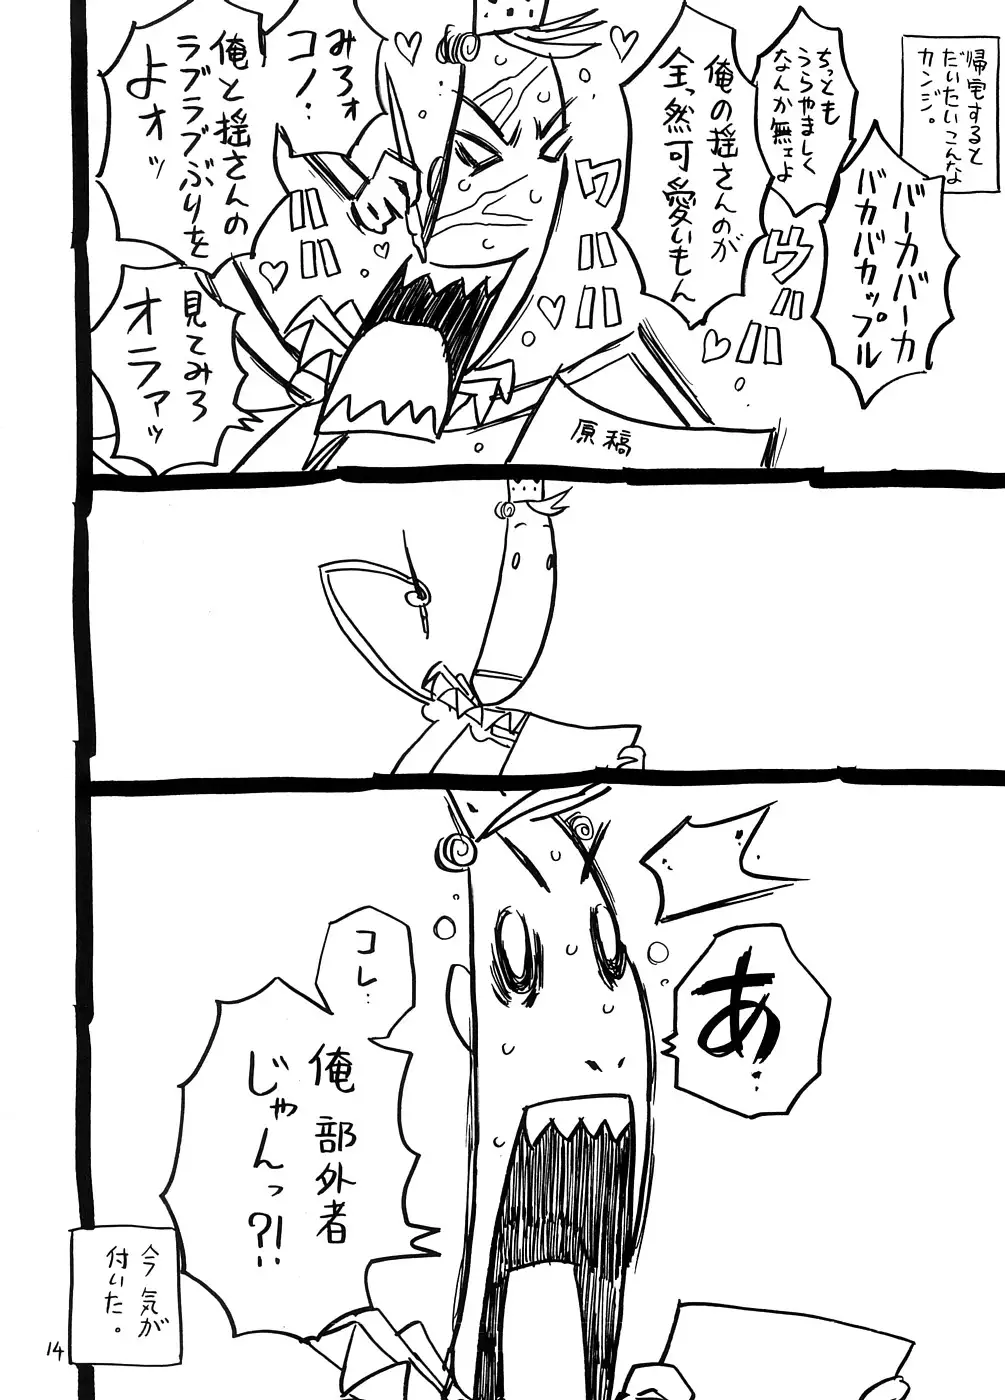 帰宅すると
だいたいこんな
カンジ。
バーカバーカ
バカバカップル
ちっとも
うらやましく
なんか無ェよ
俺の揺さんのが
全っ然可愛いもん
ワハハハ
ワハハハ
ハハハハ
みろォ
コノ…
俺と揺さんの
ラブラブぶりを
よォッ
見てみろ
オラァッ
原稿
あ…
コレ…
俺 部外者
じゃんっ?!
今気が
付いた。
14